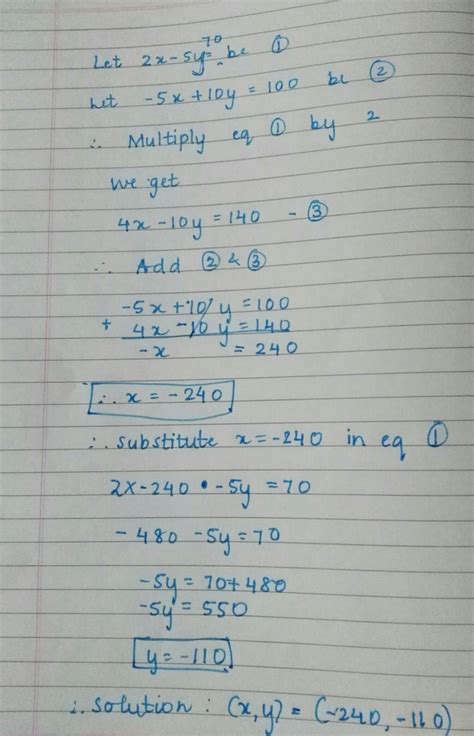 Let 2x-5y=70 be ①
Let -5x+10y = 100 be ②
∴ Multiply eq ① by 2
We get
4x-10y=140 - ③
∴ Add ② & ③
-5x+10y=100
+ 4x-10y=140
-x = 240
∴ x = -240
∴ substitute x=-240 in eq ①
2x-240 • -5y = 70
- 480 -5y=70
-5y = 70+480
-5y = 550
y = -110
∴ solution : (x,y) = (-240, -110)